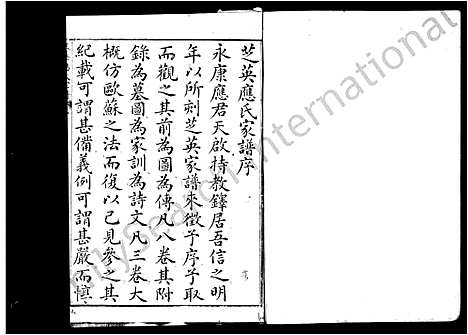 芝英應氏家譜序
永康應君天啟持教鐸居吾信之明
年以所刻芝英家譜來徵予序予取
而觀之其前為圖為傳凡八卷其附
錄為墓圖為家訓為詩文凡三卷大
概仿歐蘇之法而復以己見參之其
紀載可謂甚備義例可謂甚嚴而慎
MySearch International